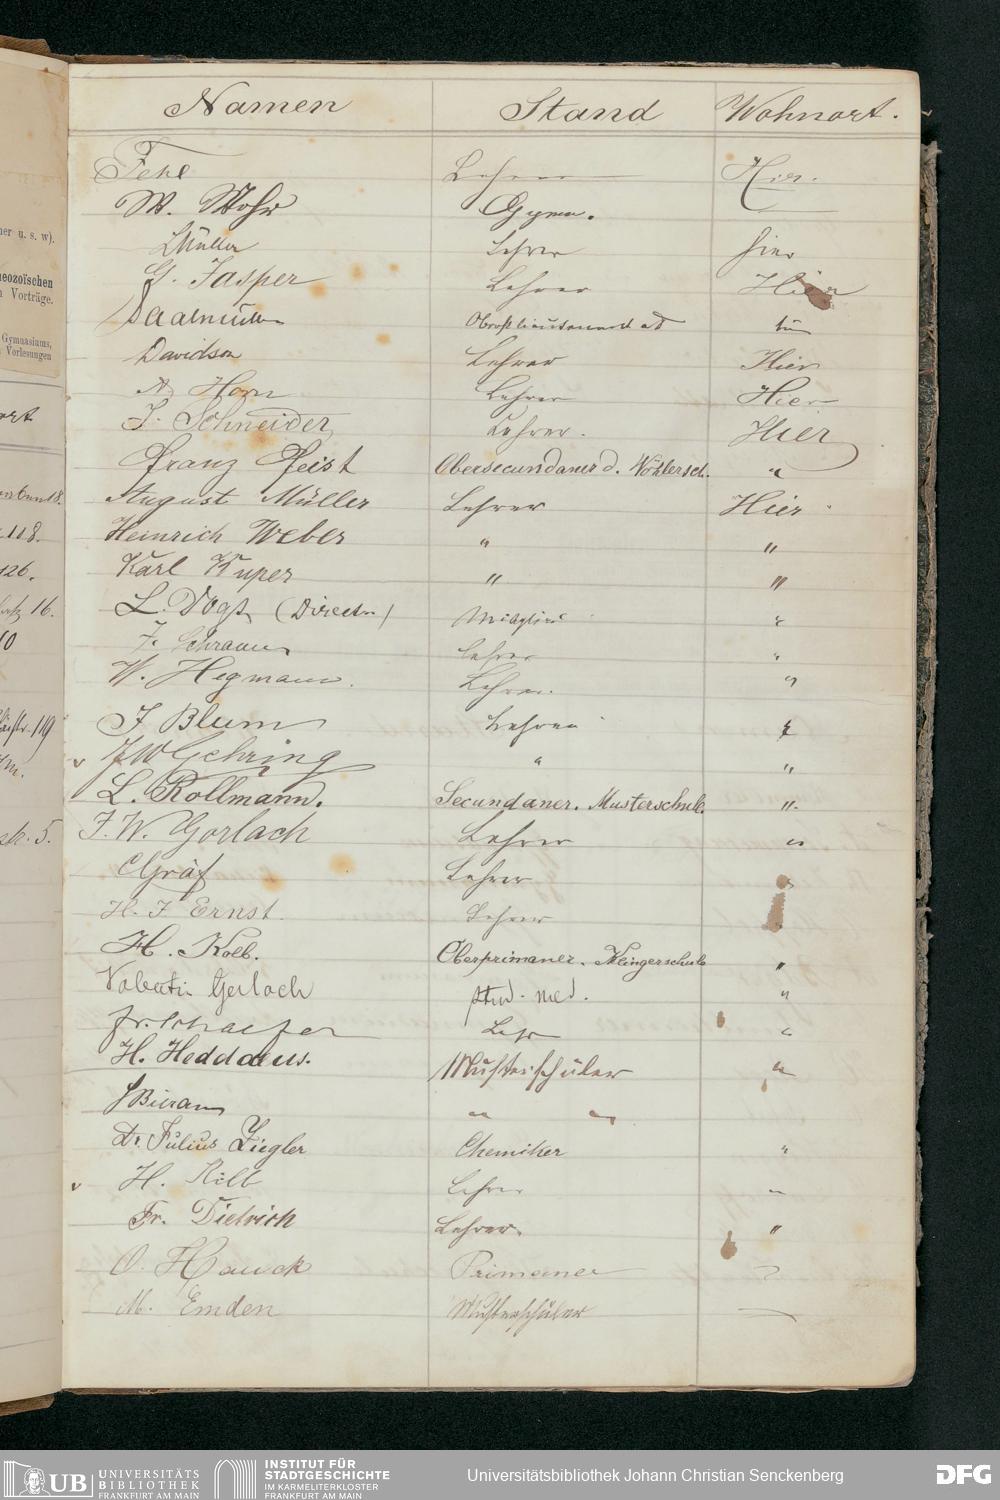 ner u. s. w).
neozoïschen
n Vorträge.
Gymnasiums,
Vorlesungen
ort
118.
126.
16.
10
119
5.
Namen Stand Wohnort.
Lehrer Hier.
W. Mohr Gymn.
Müller Lehrer hier
G. Jasper Lehrer Hier
Saalmüller
Davidson Lehrer Hier
A. Horn Lehrer Hier
J. Schneider Lehrer. Hier
Franz Feist Obersecundaner d. Wöhlersch. "
August Müller Lehrer Hier
Heinrich Weber " "
Karl Kuper " "
L. Vogt (Director) Mitglied "
F. Schramm Lehrer "
W. Hegmann. Lehrer. "
J Blum Lehrer "
JW Gehring " "
L. Rollmann. Secundaner. Musterschule. "
F. W. Gorlach Lehrer "
C Gräf Lehrer "
H. J Ernst. Lehrer
H. Kolb. Oberprimaner. Klingerschule "
Valentin Gerlach stud. med. "
Fr. Schaefer Lehr "
H. Heddaeus. Musterschüler "
" "
Dr Julius Ziegler Chemiker "
H. Lehrer "
Fr. Dietrich Lehrer. "
O. Hauck Primaner "
M. Emden Musterschüler
UB UNIVERSITÄTS
BIBLIOTHEK
FRANKFURT AM MAIN
INSTITUT FÜR
STADTGESCHICHTE
IM KARMELITERKLOSTER
FRANKFURT AM MAIN
Universitätsbibliothek Johann Christian Senckenberg
DFG